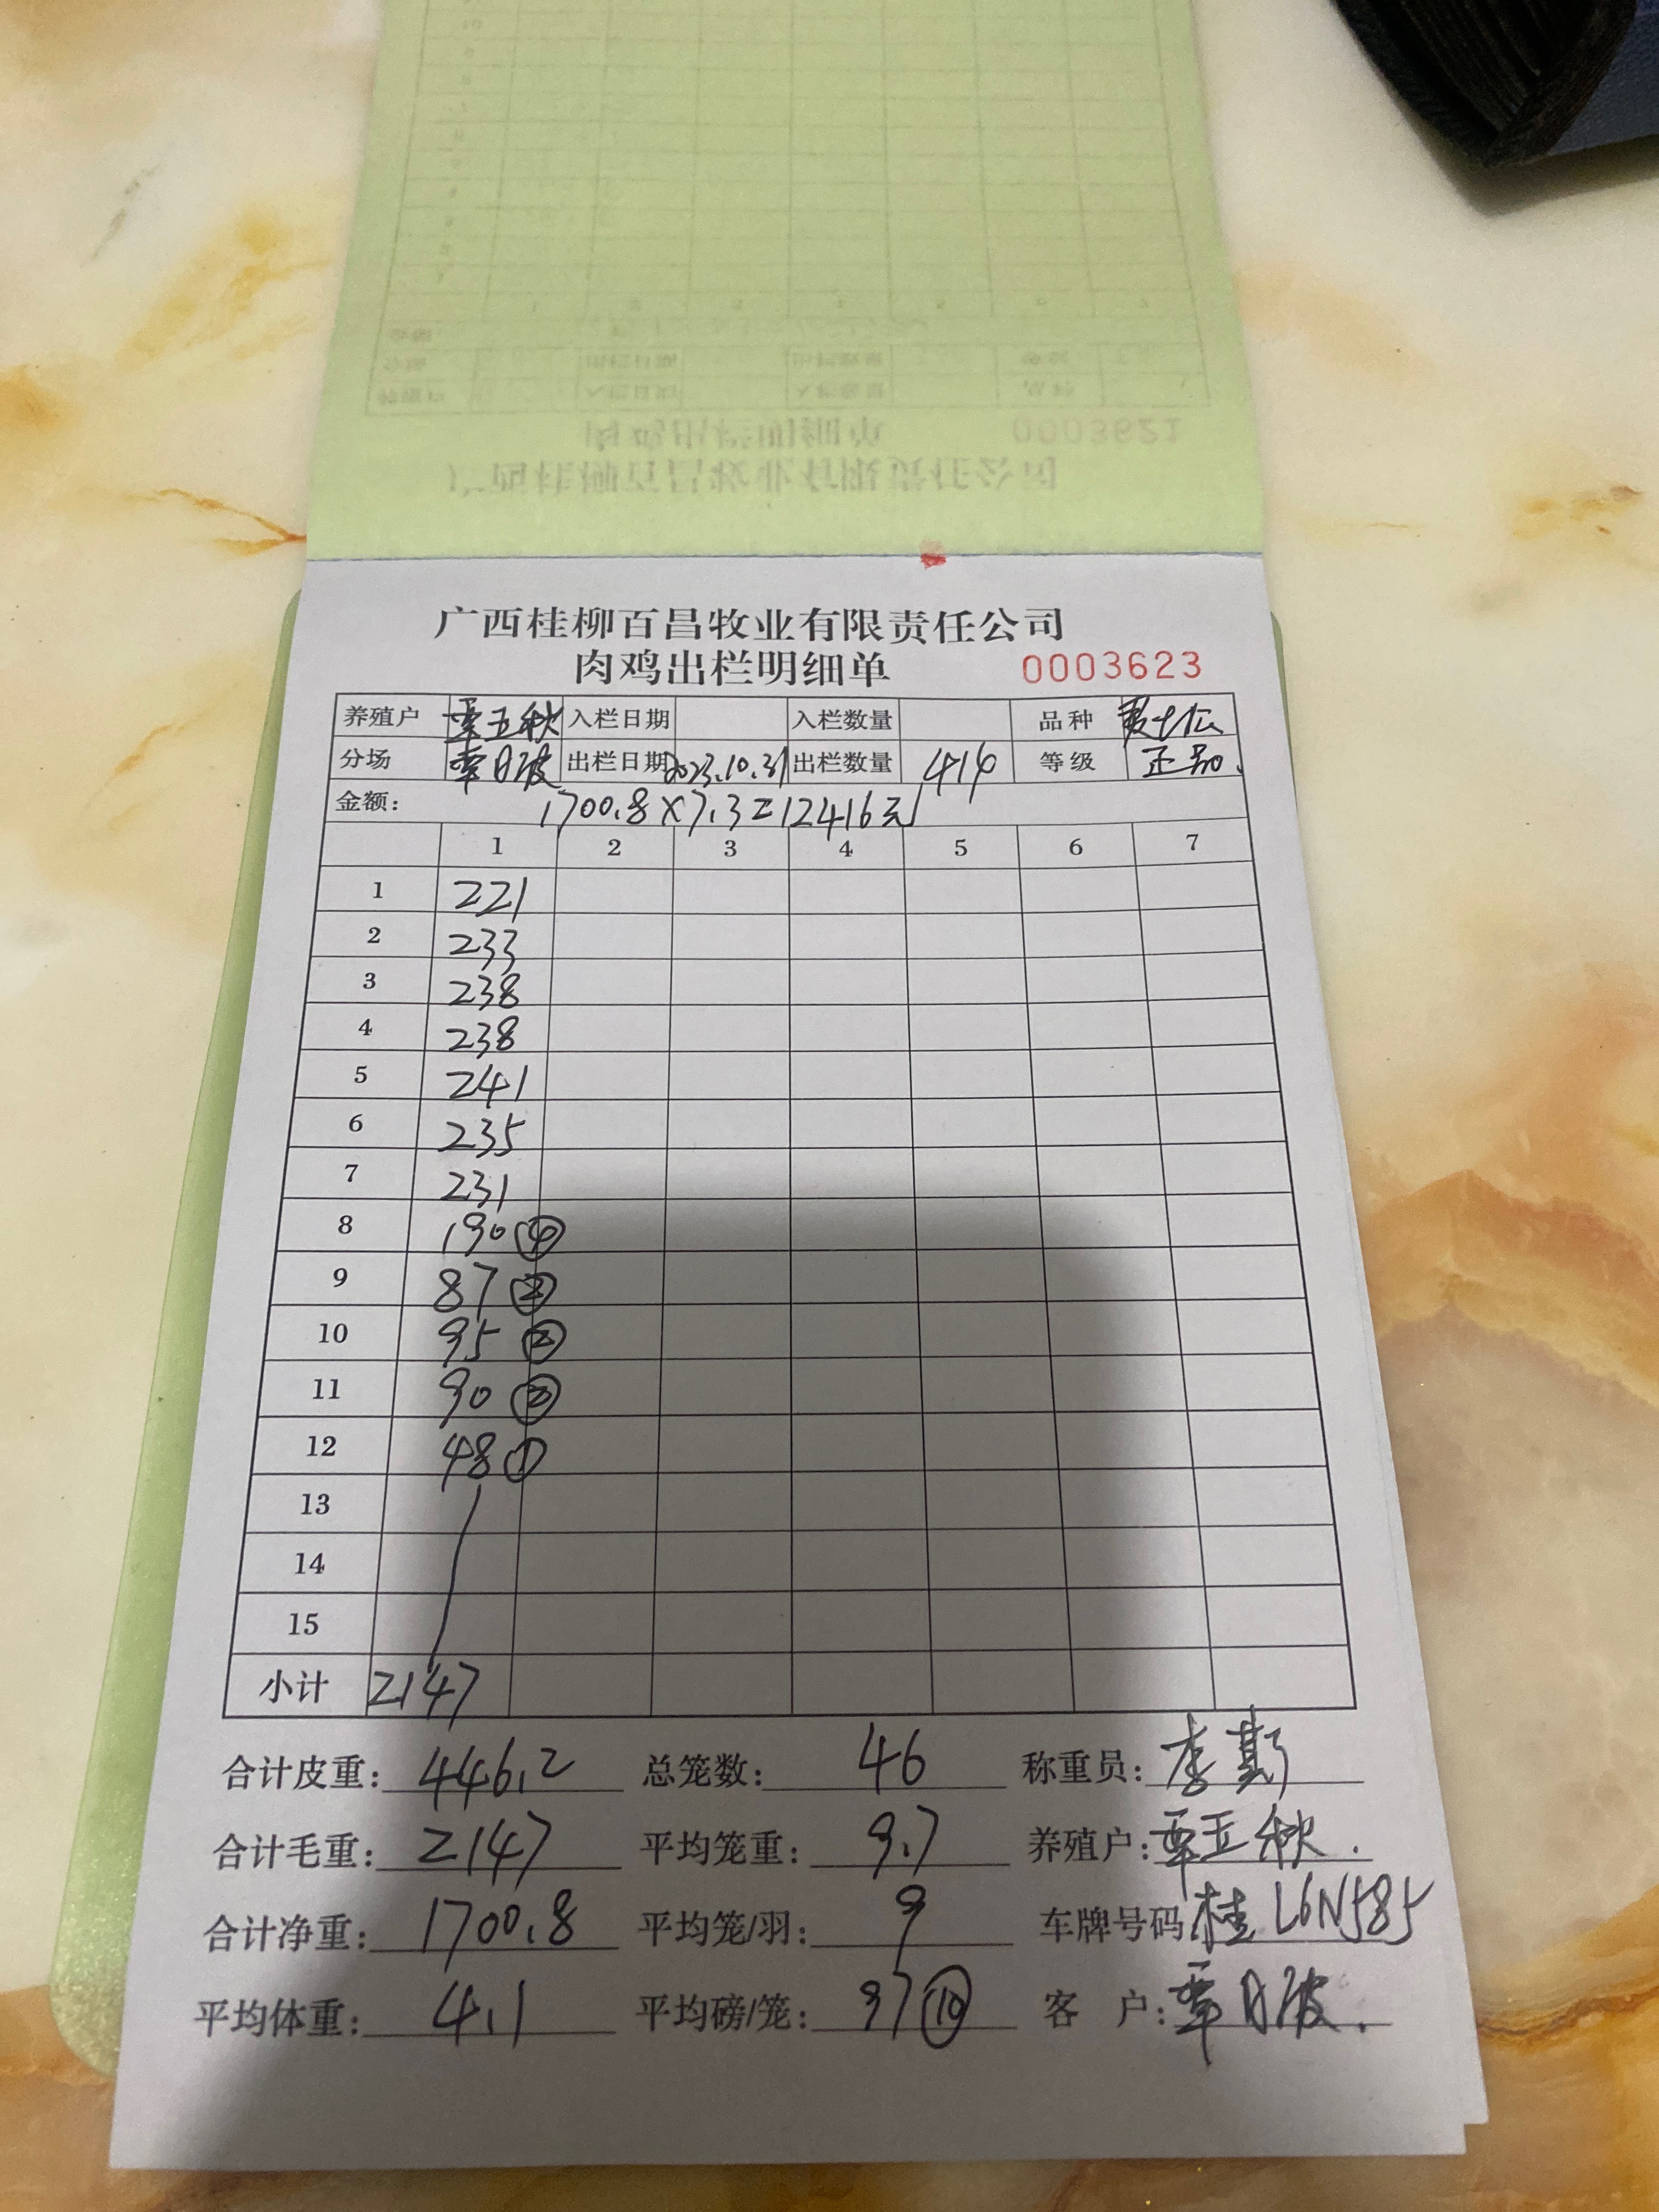 广西桂柳百昌牧业有限责任公司
肉鸡出栏明细单 0003623
养殖户 覃五秋 入栏日期 入栏数量 品种
分场 覃日波 出栏日期 2023.10.31 出栏数量 414 等级 正品.
金额: 1700.8×7.3=12416元
1 2 3 4 5 6 7
1 221
2 233
3 238
4 238
5 241
6 235
7 231
8 190 ④
9 87 ②
10 95 ②
11 90 ②
12 48 ①
13
14
15
小计 2147
合计皮重: 446.2 总笼数: 46 称重员: 李斯
合计毛重: 2147 平均笼重: 9.7 养殖户: 覃五秋.
合计净重: 1700.8 平均笼/羽: 9 车牌号码: 桂L6N585
平均体重: 4.1 平均磅/笼: 97 ⑩ 客 户: 覃日波.
0003621
肉鸡出栏明细单
广西桂柳百昌牧业有限责任公司